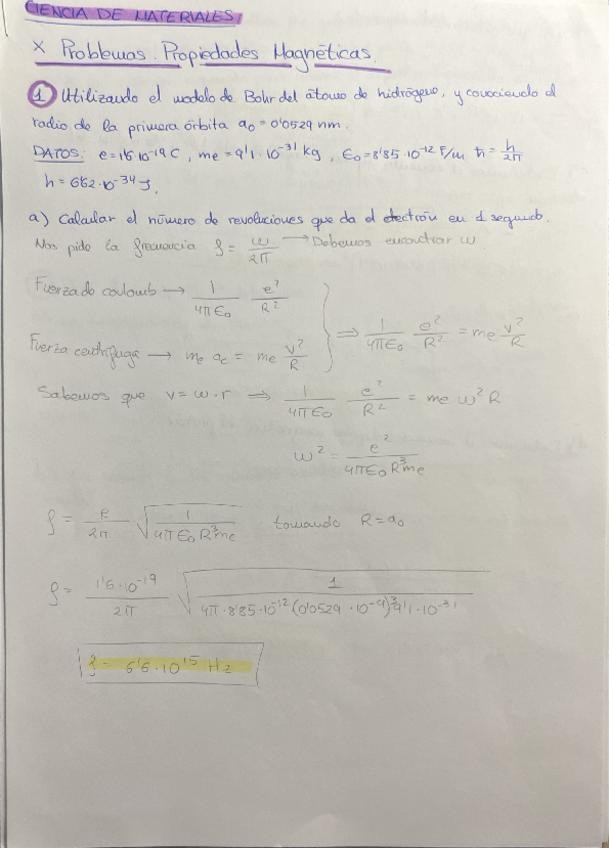 CIENCIA DE MATERIALES
x Problemas. Propiedades Magnéticas.
1 Utilizando el modelo de Bohr del átomo de hidrógeno, y conociendo el
radio de la primera órbita a₀ = 0'0529 nm.
DATOS: e = 1'6·10⁻¹⁹ C, me = 9'1·10⁻³¹ kg, ε₀ = 8'85·10⁻¹² F/m ħ = h/2π
h = 6'62·10⁻³⁴ J.
a) Calcular el número de revoluciones que da el electrón en 1 segundo.
Nos pide la frecuencia f = ω/2π → Debemos encontrar ω
Fuerza de coulomb → 1/4πε₀ e²/R²
⇒ 1/4πε₀ e²/R² = me v²/R
Fuerza centrífuga → me ac = me v²/R
Sabemos que v = ω·r ⇒ 1/4πε₀ e²/R² = me ω² R
ω² = e²/4πε₀R³me
f = e/2π √(1/4πε₀R³me) tomando R = a₀
f = 1'6·10⁻¹⁹/2π √(1/4π·8'85·10⁻¹²(0'0529·10⁻⁹)³9'1·10⁻³¹)
f = 6'6·10¹⁵ Hz